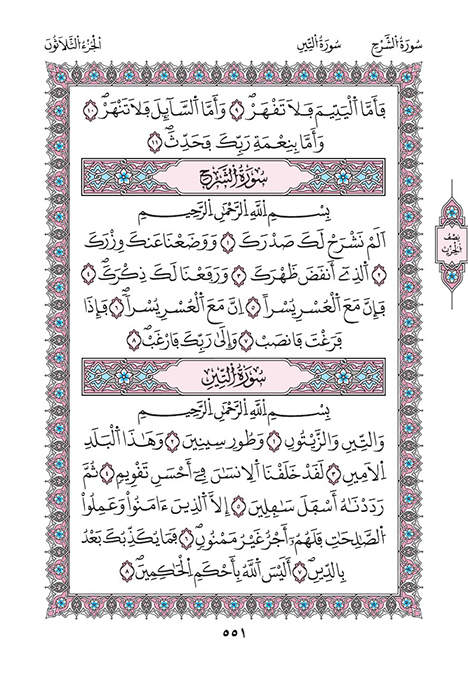 سُورَةُ الشَّرْحِ سُورَةُ التِّينِ الْجُزْءُ الثَّلَاثُونَ
فَأَمَّا اَلْيَتِيمَ فَلَا تَقْهَرْ ٩ وَأَمَّا اَلسَّآئِلَ فَلَا تَنْهَرْ ١٠
وَأَمَّا بِنِعْمَةِ رَبِّكَ فَحَدِّثْ ١١
سُورَةُ الشَّرْحِ
بِسْمِ اِللَّهِ اِلرَّحْمَٰنِ اِلرَّحِيمِ
أَلَمْ نَشْرَحْ لَكَ صَدْرَكَ ١ وَوَضَعْنَا عَنكَ وِزْرَكَ
٢ اَلَّذِے أَنقَضَ ظَهْرَكَ ٣ وَرَفَعْنَا لَكَ ذِكْرَكَ ٤
فَإِنَّ مَعَ اَلْعُسْرِ يُسْراً ٥ اِنَّ مَعَ اَلْعُسْرِ يُسْراً ٦ فَإِذَا
فَرَغْتَ فَانصَبْ ٧ وَإِلَىٰ رَبِّكَ فَارْغَب ٨
سُورَةُ التِّينِ
بِسْمِ اِللَّهِ اِلرَّحْمَٰنِ اِلرَّحِيمِ
وَالتِّينِ وَالزَّيْتُونِ ١ وَطُورِ سِينِينَ ٢ وَهَٰذَا اَلْبَلَدِ
اِلَامِينِ ٣ لَقَدْ خَلَقْنَا اَلِانسَٰنَ فِے أَحْسَنِ تَقْوِيمٍ ٤ ثُمَّ
رَدَدْنَٰهُ أَسْفَلَ سَٰفِلِينَ ٥ إِلَّا اَلذِينَ ءَامَنُواْ وَعَمِلُواْ
اُلصَّٰلِحَٰتِ فَلَهُمُۥٓ أَجْرٌ غَيْرُ مَمْنُونٍ ٦ فَمَا يُكَذِّبُكَ بَعْدُ
بِالدِّينِ ٧ أَلَيْسَ اَللَّهُ بِأَحْكَمِ اِلْحَٰكِمِينَ ٨
نِصْف
الْحِزْب
٥٥١